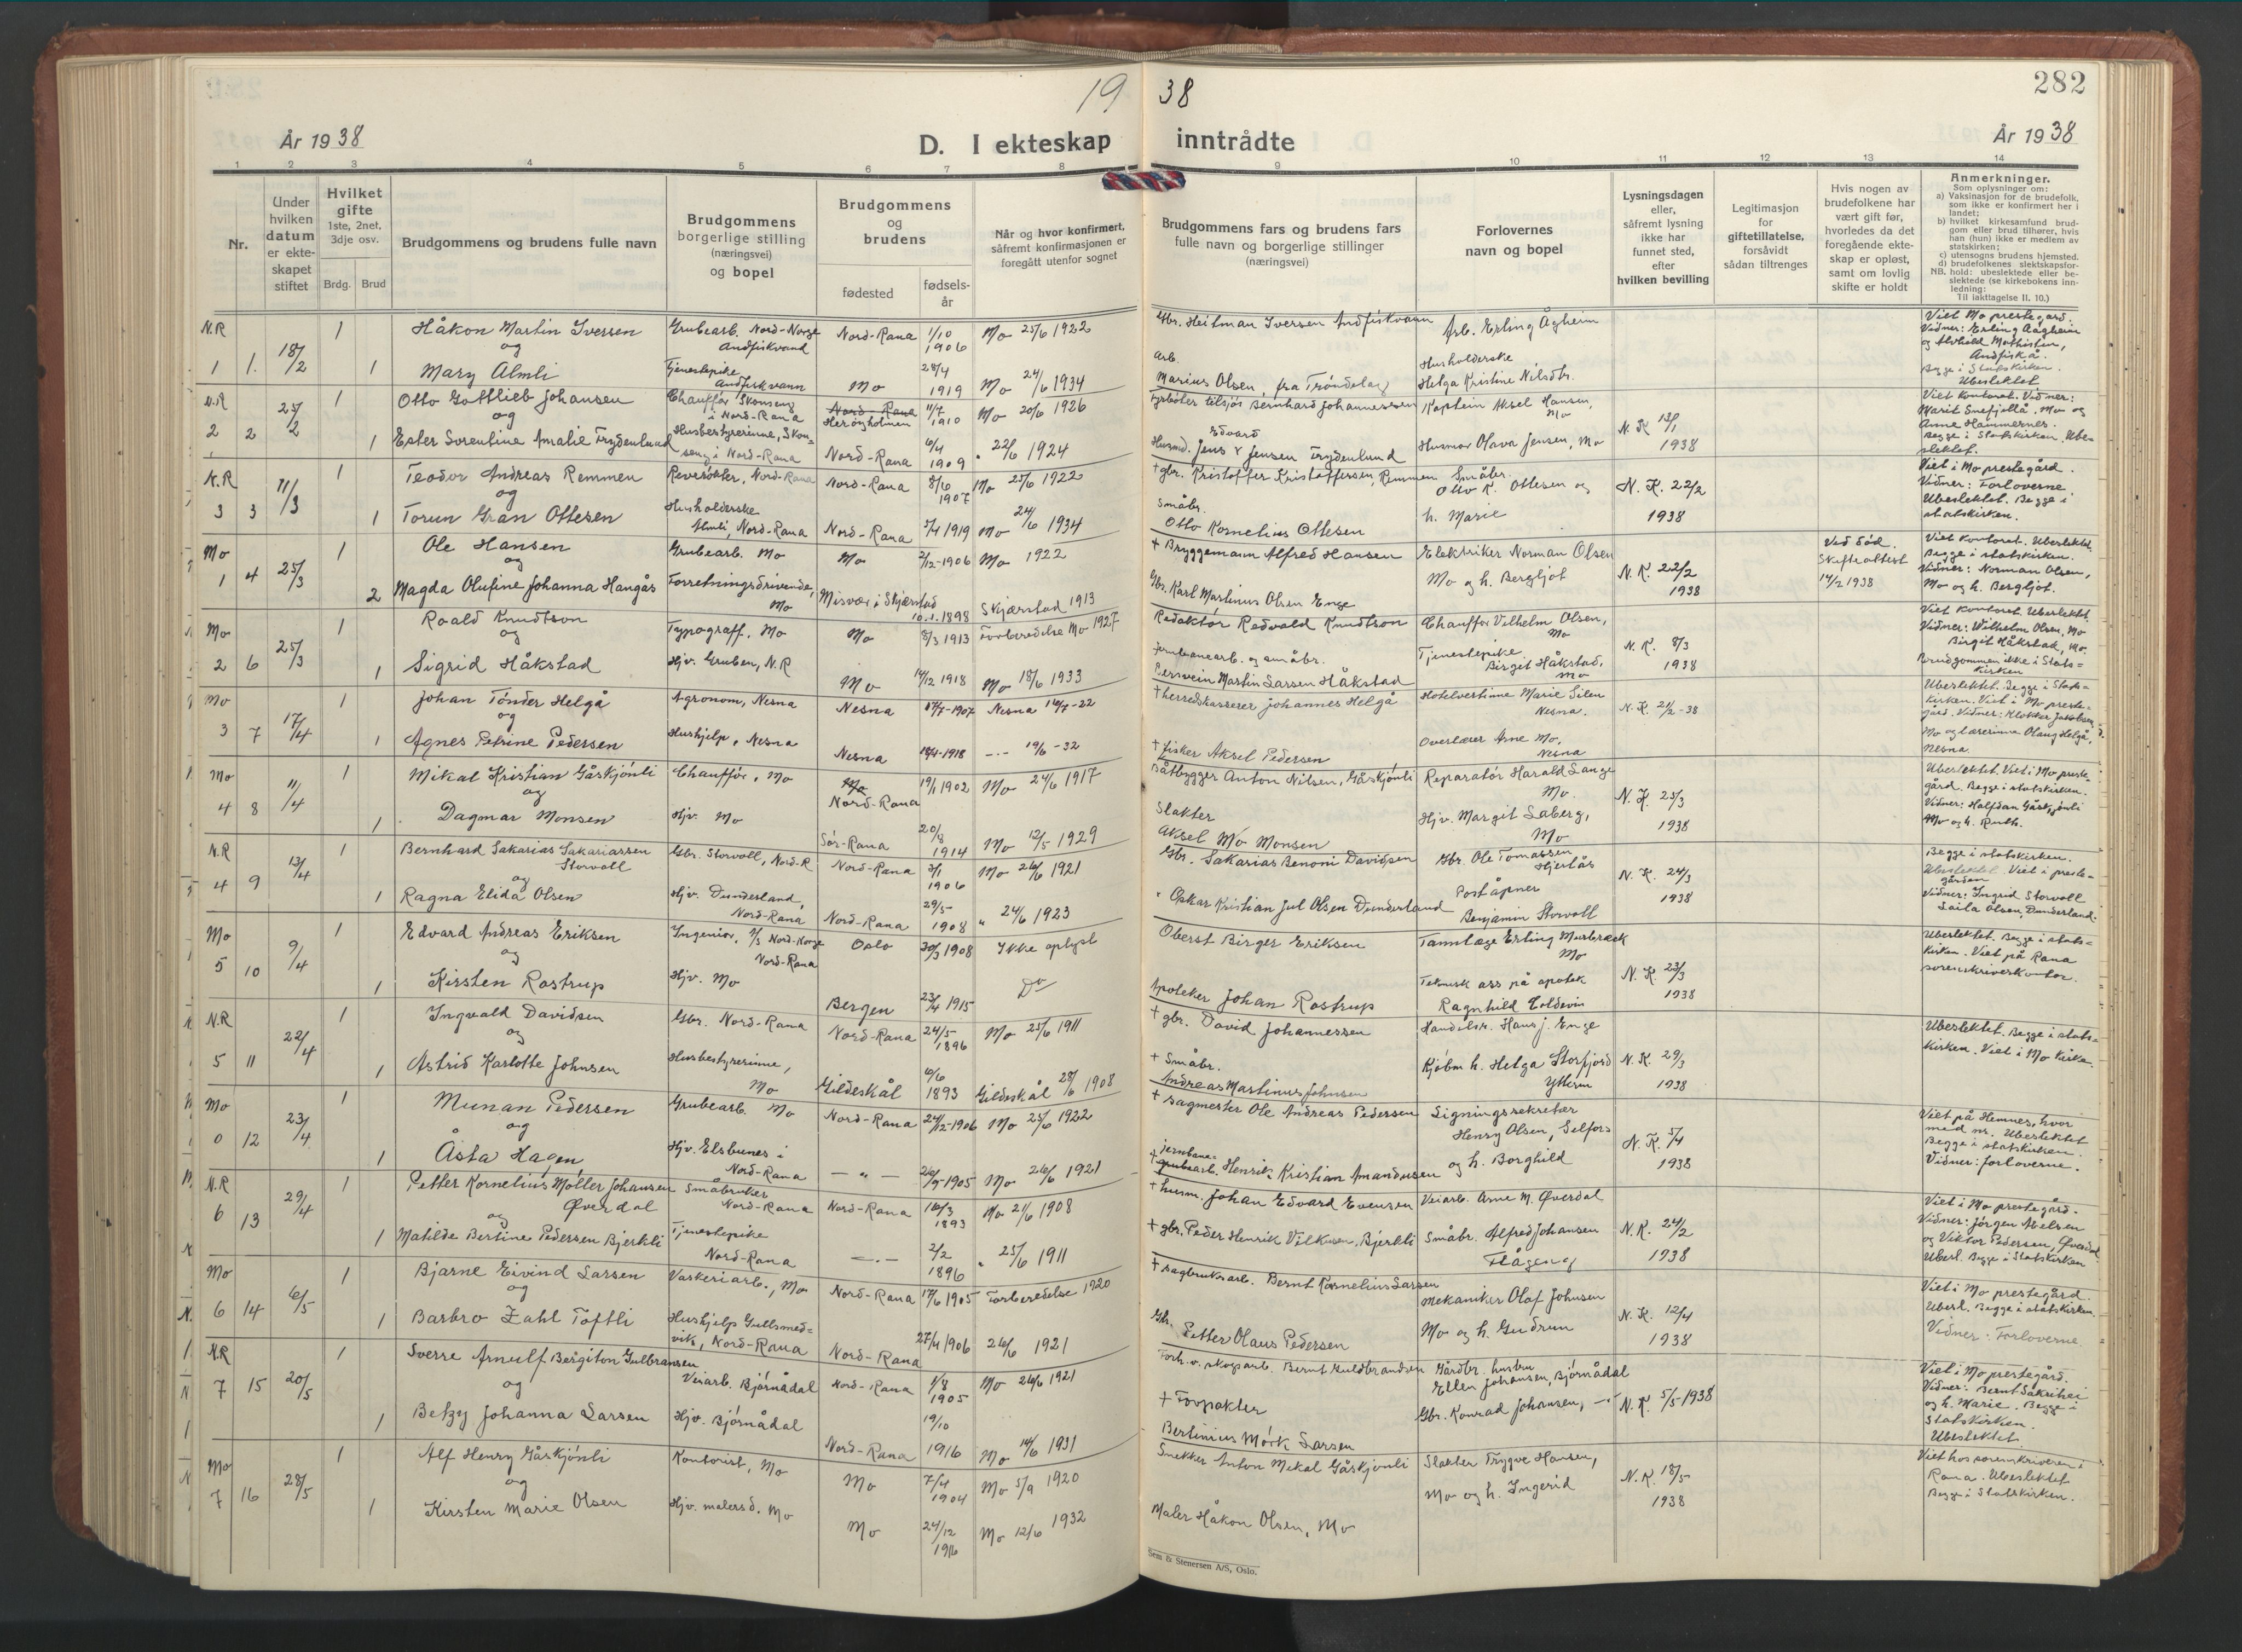 19 38
282
År 1938
D. I ekteskap inntrådte
År 1938
1 2 3 4 5 6 7 8 9 10 11 12 13 14
Nr.
Under hvilken datum er ekteskapet stiftet
Hvilket gifte
1ste, 2net, 3dje osv.
Brdg. Brud
Brudgommens og brudens fulle navn
Brudgommens borgerlige stilling (næringsvei) og bopel
Brudgommens og brudens
fødested
fødsels-år
Når og hvor konfirmert, såfremt konfirmasjonen er foregått utenfor sognet
Brudgommens fars og brudens fars fulle navn og borgerlige stillinger (næringsvei)
Forlovernes navn og bopel
Lysningsdagen eller, såfremt lysning ikke har funnet sted, efter hvilken bevilling
Legitimasjon for giftetillatelse, forsåvidt sådan tiltrenges
Hvis nogen av brudefolkene har vært gift før, hvorledes da det foregående ekteskap er opløst, samt om lovlig skifte er holdt
Anmerkninger.
Som oplysninger om:
a) Vaksinasjon for de brudefolk, som ikke er konfirmert her i landet;
b) hvilket kirkesamfund brudgom eller brud tilhører, hvis han (hun) ikke er medlem av statskirken;
c) utensogns brudens hjemsted.
d) brudefolkenes slektskapsforhold: ubeslektede eller beslektede (se kirkebokens innledning:
NB.
Til iakttagelse II. 10.)
N.R 1 1. 18/2 1 Håkon Martin Iversen Grubearb. Nord-Norge Andfiskvand Nord-Rana 1/10 1906 Mo 25/6 1922 Gbr. Heitman Iversen Andfiskvann Arb. Erling Ågheim
og
1 Mary Almli Tjenestepike Andfiskvann Mo 28/4 1919 Mo 24/6 1934 Arb. Marius Olsen, fra Trøndelag Husholderske Helga Kristine Nilsdtr.
Viet Mo prestegård. Vidner: Erling Aagheim og Alvhild Mathisen, Andfiskå. Begge i Statskirken. Ubeslektet
N.R 2 2 25/2 1 Otto Gottlieb Johansen Chauffør, Skonseng i Nord-Rana Nord-Rana Herøyholmen 11/7 1910 Mo 20/6 1926 Fyrbøter tilsjøs Bernhard Johannessen Kaptein Aksel Hansen, Mo N.K 13/1 1938
og
1 Ester Sorentine Amalie Frydenlund Husbestyrerinne, Skonseng i Nord-Rana Nord-Rana 6/4 1909 " 22/6 1924 Husmd. Jens Edvard Jensen Frydenlund Husmor Olava Jensen, Mo
Viet Kontoret. Vidner: Marit Snefjellå, Mo og Anne Hammernes. Begge i Statskirken. Ubeslektet.
N.R 3 3 11/3 1 Teodor Andreas Remmen Revesøkter, Nord-Rana Nord-Rana 8/6 1907 Mo 25/6 1922 + gbr. Kristoffer Kristoffersen, Remmen Småbr. Otto K. Ottesen og h. Marie N.K. 22/2 1938
og
1 Torun Gran Ottesen Husholderske Almli, Nord-Rana Nord-Rana 5/4 1919 Mo 24/6 1934 Småbr. Otto Kornelius Ottesen
Viet i Mo prestegård. Vidner: Forloverne. Ubeslektet. Begge i statskirken.
Mo 1 4 25/3 1 Ole Hansen Grubearb. Mo Mo 2/12-1906 Mo 1922 + Bryggemann Alfred Hansen Elektriker Norman Olsen Mo og h. Bergljot N.K. 22/2 1938 Ved död. Skifteattest 14/2 1938
og
2 Magda Olufine Johanna Hangås Forretningsdrivende, Mo Misvær i Skjærstad 10.1.1898 Skjærstad 1913 Gbr. Karl Martinus Olsen Enge
Viet Kontoret. Ubeslektet. Begge i statskirken. Vidner: Norman Olsen, Mo og h. Bergljot.
Mo 2 6 25/3 1 Roald Knudtson Typograff, Mo Mo 8/3 1913 Forberedelse Mo 1927 Redaktør Redvald Knudtson Chauffør Vilhelm Olsen, Mo N.K. 8/3 1938
og
1 Sigrid Håkstad Hjv. Gruben, N.R Mo 14/12 1918 Mo 18/6 1933 Jernbanearb. og småbr. Persvein Martin Larsen Håkstad Tjenestepike Birgit Håkstad, Mo
Viet kontoret. Ubeslektet. Vidner: Wilhelm Olsen, Mo Birgit Håkstad, Mo. Brudgommen ikke i Statskirken
Mo 3 7 17/4 1 Johan Tönder Helgå Agronom, Nesna Nesna 17/7-1907 Nesna 16/7-22 + herredskasserer Johannes Helgå Hotelvertinne Marie Silen Nesna. N.K. 21/2-38
og
1 Agnes Petrine Pedersen Hushjelp, Nesna Nesna 18/4-1918 —"— 19/6-32 + fisker Aksel Pedersen Overlærer Arne Mo, Nesna
Ubeslektet. Begge i Statskirken. Viet i Mo prestegård. Vidner: Klokker Jakobsen, Mo og lærerinne Olaug Helgå, Nesna.
Mo 4 8 11/4 1 Mikal Kristian Gåskjönli Chauffør, Mo Mo Nord-Rana 19/1 1902 Mo 24/6 1917 Båtbygger Anton Nilsen, Gåskjönli Reparatör Harald Lange Mo. N.K. 25/3 1938
og
1 Dagmar Monsen Hjv. Mo Sør-Rana 20/8 1914 Mo 12/5 1929 Slakter Aksel Mo Monsen Hjv. Margit Laberg, Mo
Ubeslektet. Viet i Mo prestegård. Begge i statskirken. Vidner: Halfdan Gåskjönli Mo og h. Ruth.
N.R 4 9 13/4 1 Bernhard Sakarias Sakariassen Storvoll Gbr. Storvoll, Nord-R Nord-Rana 3/1 1906 Mo 26/6 1921 Gbr. Sakarias Benoni Davidsen Gbr. Ole Tomassen Hjertås N.K. 24/3 1938
og
1 Ragna Elida Olsen Hjv. Dunderland, Nord-Rana Nord-Rana 29/5- 1908 " 24/6 1923 " Oskar Kristian Jul Olsen Dunderland Poståpner Benjamin Storvoll
Begge i statskirken. Ubeslektet. Viet i prestegården Vidner: Ingrid Storvoll Laila Olsen, Dunderland.
Mo 5 10 9/4 1 Edvard Andreas Eriksen Ingeniør, A/S Nord-Norge Nord-Rana Oslo 30/3 1908 Ikke oplyst Oberst Birger Eriksen Tannlæge Erling Mo N.K. 23/3 1938
og
1 Kirsten Rostrup Hjv. Mo Bergen 23/4 1915 Do Apoteker Johan Rostrup Teknisk ass på apotek Ragnhild Toldevin
Ubeslektet. Begge i statskirken. Viet på Rana sorenskriverkontor.
N.R 5 11 22/4 1 Ingvald Davidsen Gbr. Nord-Rana Nord-Rana 24/5- 1896 Mo 25/6 1911 + gbr. David Johannessen Handelsr. Hans J. Enge
og
1 Astrid Karlotte Johnsen Husbestyrerinne, Mo Gildeskål 6/6 1893 Gildeskål 28/6 1908 + Småbr. Andreas Martinus Johnsen Kjøbm h. Helga Storfjord Ytteren N.K. 29/3 1938
Ubeslektet. Begge i statskirken. Viet i Mo kirke.
Mo 0 12 23/4 1 Munan Pedersen Grubearb. Mo Nord-Rana 24/12-1906 Mo 25/6 1922 + sagmester Ole Andreas Pedersen Ligningssekretær Henry Olsen, Selfors og h. Borghild N.K. 5/4 1938
og
1 Åsta Hagen Hjv. Elsbunes i Nord-Rana — " — 26/9-1905 Mo 26/6 1921 + jernbane- grubearb. Henrik Kristian Amandusen
Viet på Hemnes, hvor med nr. Ubeslektet Begge i statskirken. Vidner: forloverne.
N.R 6 13 29/4 1 Petter Kornelius Möller Johansen Øverdal Småbruker Nord-Rana Nord-Rana 16/3 1893 Mo 21/6 1908 + husm. Johan Edvard Evensen Veiarb. Arne M. Øverdal
og
1 Matilde Bertine Pedersen Bjerkli Tjenestepike Nord-Rana —"— 2/2 1896 " 25/6 1911 + gbr. Peder Henrik Vilksen, Bjerkli Småbr. Alfred Johansen N.K. 24/2 1938
Viet i Mo prestegård. Vidner: Jörgen Nielsen og Viktor Pedersen, Øverdal Ubesl. Begge i Statskirken
Mo 6 14 6/5 1 Bjarne Eivind Larsen Vaskeriarb., Mo Nord-Rana 17/6 1905 Forberedelse 1920 + sagbruksarb. Bernt Kornelius Larsen Mekaniker Olaf Johnsen Mo og h. Gudrun N.K. 12/4 1938
og
1 Barbro Zahl Toftli Hushjelp Gullsmedvik, Nord-Rana Nord-Rana 27/4 1906 26/6 1921 Gbr. Petter Olaus Pedersen
Viet i Mo prestegård. Ubesl. Begge i statskirken. Vidner: Forloverne
N.R 7 15 20/5 1 Sverre Arnulf Bergiton Gulbransen Veiarb. Bjørnådal Nord-Rana 1/8 1905 Mo 26/6 1921 Forh.v. skogsarb. Bernt Guldbrandsen Gårdbr. hustru Ellen Johansen, Bjørnådal
og
1 Betzy Johanna Larsen Hjv. Bjørnådal Nord-Rana 19/10 1916 Mo 14/6 1931 + Forpakter Bertinius Mörk Larsen Gbr. Konrad Johansen, —" N.K. 5/5-1938
Viet i Mo prestegård. Vidner: Bernt og h. Marie. Begge i Statskirken. Ubeslektet.
Mo 7 16 28/5 1 Alf Henry Gåskjönli Kontorist, Mo Mo 7/4 1904 Mo 5/9 1920 Snekker Anton Mekal Gåskjönli Slakter Trygve Hansen, Mo og h. Ingerid N.K. 18/5 1938
og
1 Kirsten Marie Olsen Hjv. malersd. Mo Mo 24/12 1916 Mo 12/6 1932 Maler Håkon Olsen, Mo
Viet hos sorenskriveren i Rana. Ubeslektet Begge i Statskirken.
Sem & Stenersen A/S, Oslo.